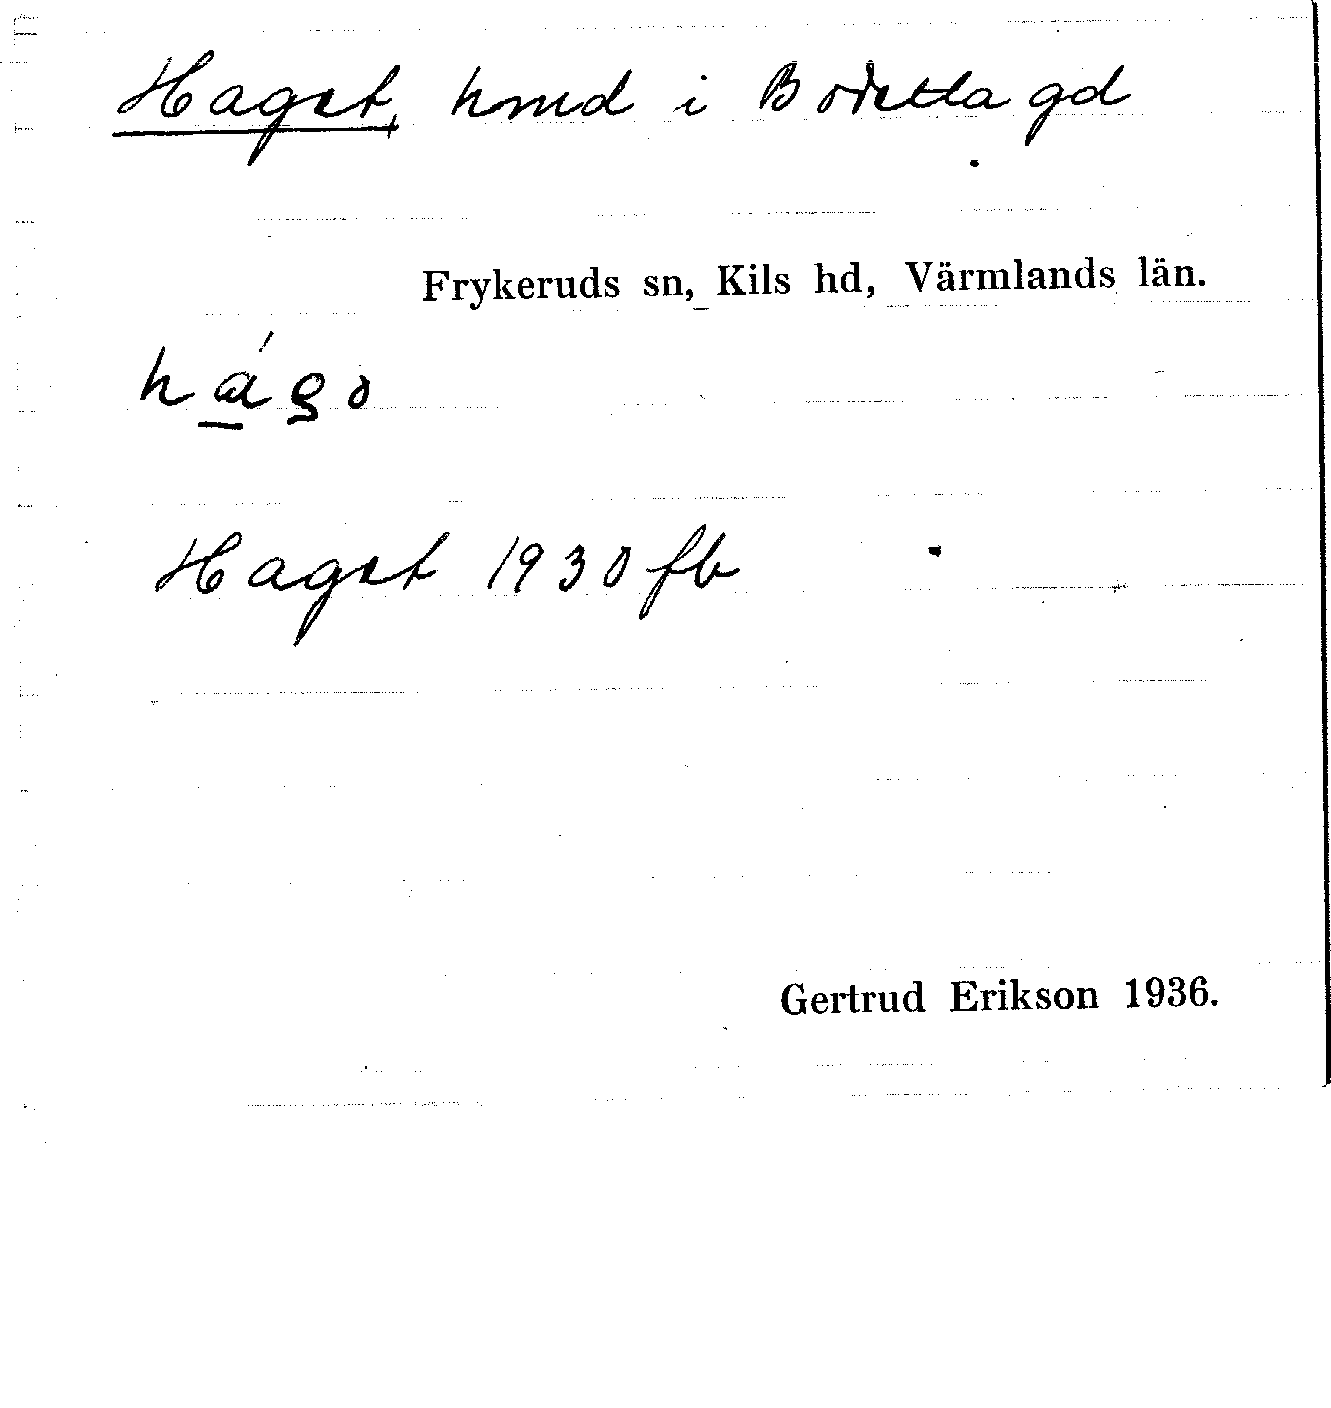 Haget, hmd i Bodetta gd
Frykeruds sn, Kils hd, Värmlands län.
Haget 1930 fb
Gertrud Erikson 1936.